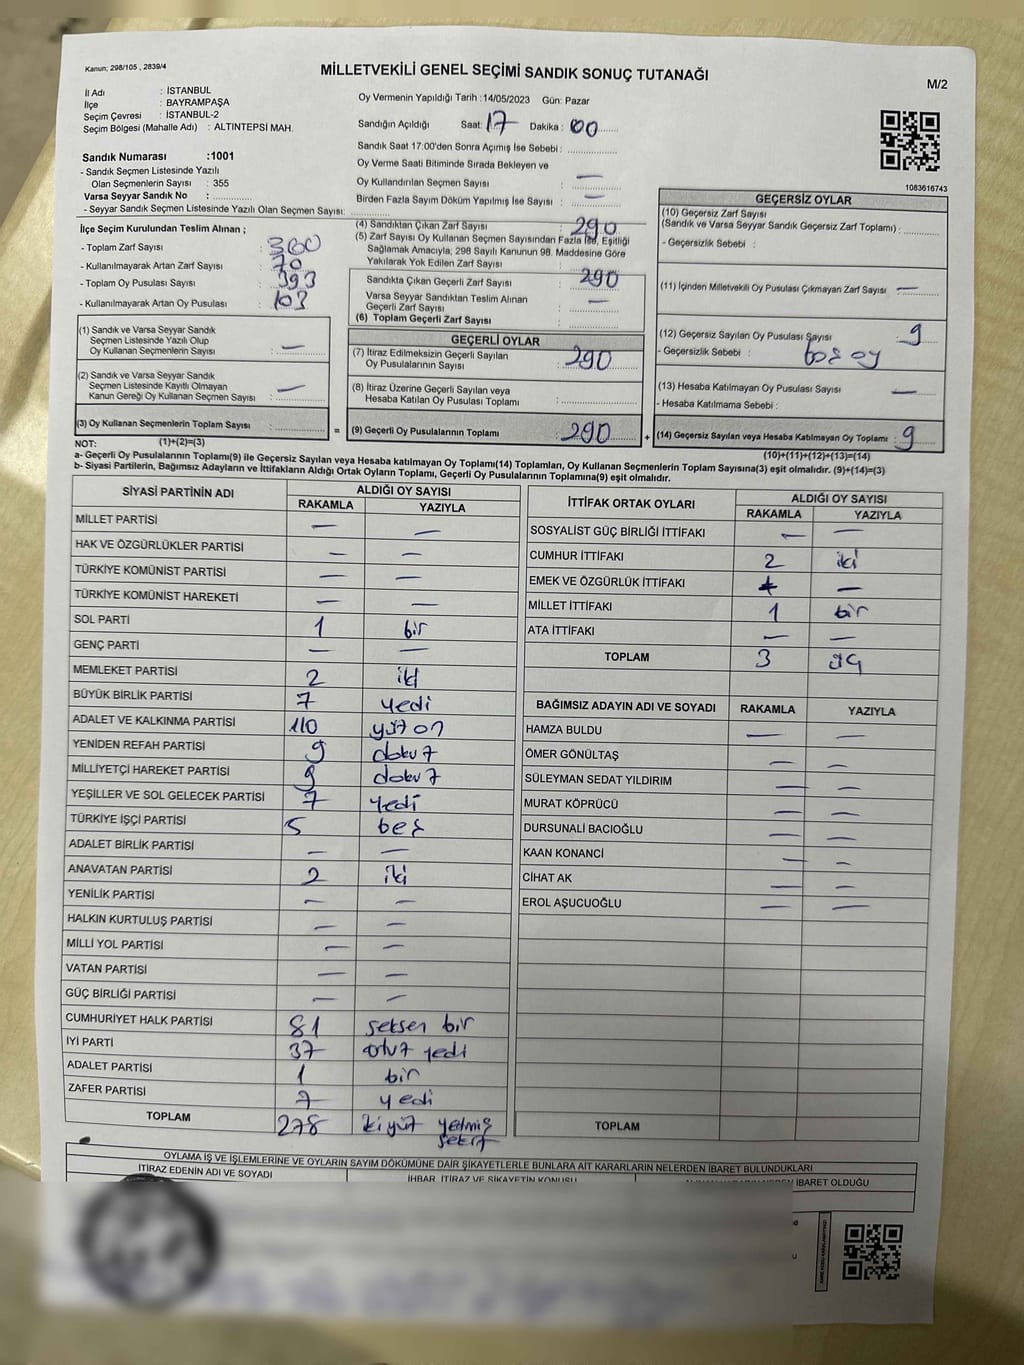 Kanun; 298/105 , 2839/4
MİLLETVEKİLİ GENEL SEÇİMİ SANDIK SONUÇ TUTANAĞI
M/2
İl Adı : İSTANBUL
İlçe : BAYRAMPAŞA
Seçim Çevresi : İSTANBUL-2
Seçim Bölgesi (Mahalle Adı) : ALTINTEPSİ MAH.
Sandık Numarası :1001
- Sandık Seçmen Listesinde Yazılı
Olan Seçmenlerin Sayısı : 355
Varsa Seyyar Sandık No :
- Seyyar Sandık Seçmen Listesinde Yazılı Olan Seçmen Sayısı:
Oy Vermenin Yapıldığı Tarih :14/05/2023 Gün: Pazar
Sandığın Açıldığı Saat: 17 Dakika : 00
Sandık Saat 17:00'den Sonra Açımış İse Sebebi :
Oy Verme Saati Bitiminde Sırada Bekleyen ve
Oy Kullandırılan Seçmen Sayısı —
Birden Fazla Sayım Döküm Yapılmış İse Sayısı : —
1083616743
İlçe Seçim Kurulundan Teslim Alınan ;
- Toplam Zarf Sayısı : 360
- Kullanılmayarak Artan Zarf Sayısı : 70
- Toplam Oy Pusulası Sayısı : 393
- Kullanılmayarak Artan Oy Pusulası : 103
(1) Sandık ve Varsa Seyyar Sandık
Seçmen Listesinde Yazılı Olup
Oy Kullanan Seçmenlerin Sayısı : —
(2) Sandık ve Varsa Seyyar Sandık
Seçmen Listesinde Kayıtlı Olmayan
Kanun Gereği Oy Kullanan Seçmen Sayısı : —
(3) Oy Kullanan Seçmenlerin Toplam Sayısı :
(1)+(2)=(3)
(4) Sandıktan Çıkan Zarf Sayısı : 290
(5) Zarf Sayısı Oy Kullanan Seçmen Sayısından Fazla İse, Eşitliği
Sağlamak Amacıyla; 298 Sayılı Kanunun 98. Maddesine Göre
Yakılarak Yok Edilen Zarf Sayısı :
Sandıkta Çıkan Geçerli Zarf Sayısı : 290
Varsa Seyyar Sandıktan Teslim Alınan
Geçerli Zarf Sayısı : —
(6) Toplam Geçerli Zarf Sayısı :
GEÇERLİ OYLAR
(7) İtiraz Edilmeksizin Geçerli Sayılan
Oy Pusulalarının Sayısı : 290
(8) İtiraz Üzerine Geçerli Sayılan veya
Hesaba Katılan Oy Pusulası Toplamı :
= (9) Geçerli Oy Pusulalarının Toplamı : 290
GEÇERSİZ OYLAR
(10) Geçersiz Zarf Sayısı
(Sandık ve Varsa Seyyar Sandık Geçersiz Zarf Toplamı) :
- Geçersizlik Sebebi :
(11) İçinden Milletvekili Oy Pusulası Çıkmayan Zarf Sayısı : —
(12) Geçersiz Sayılan Oy Pusulası Sayısı : 9
- Geçersizlik Sebebi : boş oy
(13) Hesaba Katılmayan Oy Pusulası Sayısı : —
- Hesaba Katılmama Sebebi :
+ (14) Geçersiz Sayılan veya Hesaba Katılmayan Oy Toplamı : 9
(10)+(11)+(12)+(13)=(14)
NOT:
a- Geçerli Oy Pusulalarının Toplamı(9) ile Geçersiz Sayılan veya Hesaba katılmayan Oy Toplamı(14) Toplamları, Oy Kullanan Seçmenlerin Toplam Sayısına(3) eşit olmalıdır. (9)+(14)=(3)
b- Siyasi Partilerin, Bağımsız Adayların ve İttifakların Aldığı Ortak Oyların Toplamı, Geçerli Oy Pusulalarının Toplamına(9) eşit olmalıdır.
SİYASİ PARTİNİN ADI ALDIĞI OY SAYISI
RAKAMLA YAZIYLA
MİLLET PARTİSİ — —
HAK VE ÖZGÜRLÜKLER PARTİSİ — —
TÜRKİYE KOMÜNİST PARTİSİ — —
TÜRKİYE KOMÜNİST HAREKETİ — —
SOL PARTİ 1 bir
GENÇ PARTİ — —
MEMLEKET PARTİSİ 2 iki
BÜYÜK BİRLİK PARTİSİ 7 yedi
ADALET VE KALKINMA PARTİSİ 110 yüz on
YENİDEN REFAH PARTİSİ 9 dokuz
MİLLİYETÇİ HAREKET PARTİSİ 9 dokuz
YEŞİLLER VE SOL GELECEK PARTİSİ 7 yedi
TÜRKİYE İŞÇİ PARTİSİ 5 beş
ADALET BİRLİK PARTİSİ — —
ANAVATAN PARTİSİ 2 iki
YENİLİK PARTİSİ — —
HALKIN KURTULUŞ PARTİSİ — —
MİLLİ YOL PARTİSİ — —
VATAN PARTİSİ — —
GÜÇ BİRLİĞİ PARTİSİ — —
CUMHURİYET HALK PARTİSİ 81 seksen bir
İYİ PARTİ 37 otuz yedi
ADALET PARTİSİ 1 bir
ZAFER PARTİSİ 7 yedi
TOPLAM 278 ikiyüz yetmiş
sekiz
İTTİFAK ORTAK OYLARI ALDIĞI OY SAYISI
RAKAMLA YAZIYLA
SOSYALİST GÜÇ BİRLİĞİ İTTİFAKI — —
CUMHUR İTTİFAKI 2 iki
EMEK VE ÖZGÜRLÜK İTTİFAKI —
MİLLET İTTİFAKI 1 bir
ATA İTTİFAKI — —
TOPLAM 3 üç
BAĞIMSIZ ADAYIN ADI VE SOYADI RAKAMLA YAZIYLA
HAMZA BULDU — —
ÖMER GÖNÜLTAŞ — —
SÜLEYMAN SEDAT YILDIRIM — —
MURAT KÖPRÜCÜ — —
DURSUNALİ BACIOĞLU — —
KAAN KONANCİ — —
CİHAT AK — —
EROL AŞUCUOĞLU — —
TOPLAM
OYLAMA İŞ VE İŞLEMLERİNE VE OYLARIN SAYIM DÖKÜMÜNE DAİR ŞİKAYETLERLE BUNLARA AİT KARARLARIN NELERDEN İBARET BULUNDUKLARI
İTİRAZ EDENİN ADI VE SOYADI İHBAR, İTİRAZ VE ŞİKAYETİN KONUSU İBARET OLDUĞU